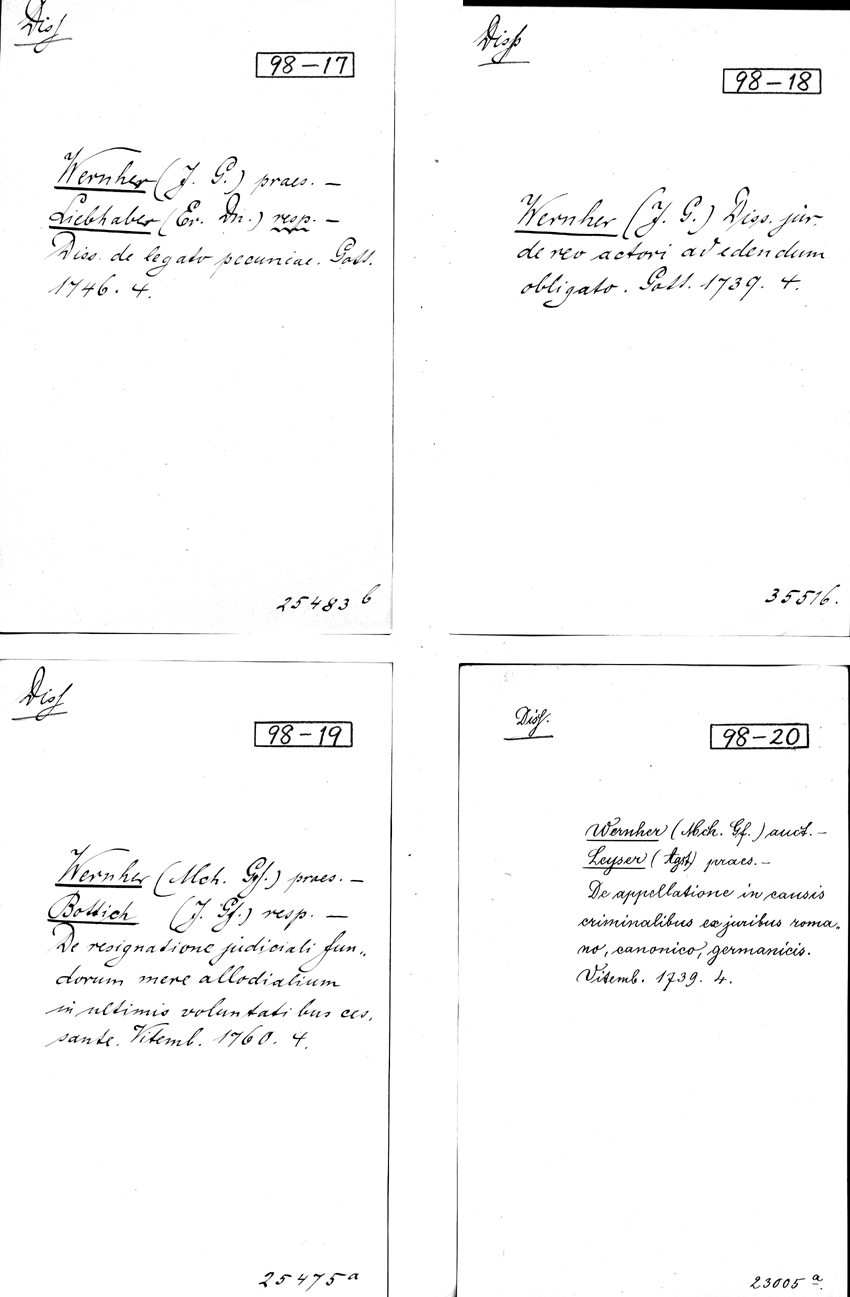 Diss
98-17
Wernher (J. G.) praes. —
Liebhaber (Er. Dn.) resp. —
Diss. de legato pecuniae. Gott.
1746. 4.
25483 b
Diss
98-18
Wernher (J. G.) Diss. jur.
de reo actori ad edendum
obligato. Gott. 1739. 4.
35516.
Diss
98-19
Wernher (Mch. Gf.) praes. —
Bottich (J. Gf.) resp. —
De resignatione judiciali fun„
dorum mere allodialium
in ultimis voluntatibus ces„
sante. Vitemb. 1760. 4.
25475a
Diss.
98-20
Wernher (Mch. Gf.) auct. —
Leyser (Agst) praes. —
De appellatione in causis
criminalibus ex juribus roma„
no, canonico, germanicis.
Vitemb. 1739. 4.
23005 a.